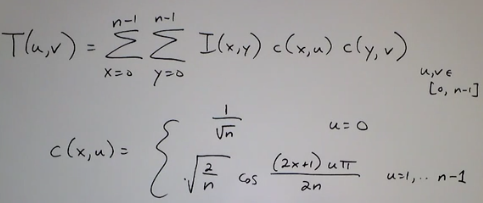 T(u,v) = \sum_{x=0}^{n-1} \sum_{y=0}^{n-1} I(x,y) c(x,u) c(y,v)
u,v ∈ [0, n-1]
c(x,u) = {
\frac{1}{\sqrt{n}} u=0
\sqrt{\frac{2}{n}} cos \frac{(2x+1) u π}{2n} u=1,.. n-1